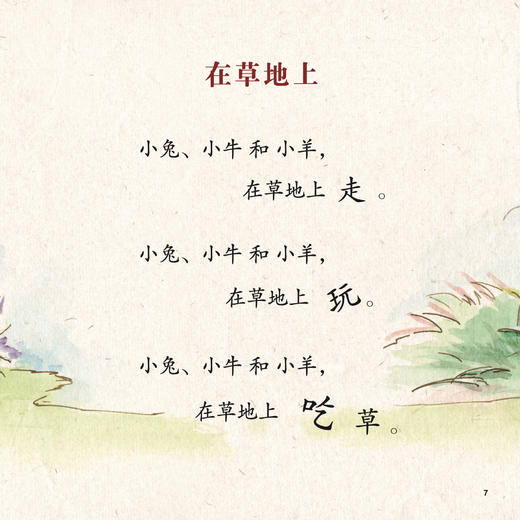 在草地上
小兔、小牛 和 小羊，
在草地上 走 。
小兔、小牛 和 小羊，
在草地上 玩。
小兔、小牛 和 小羊，
在草地上 吃 草。
7